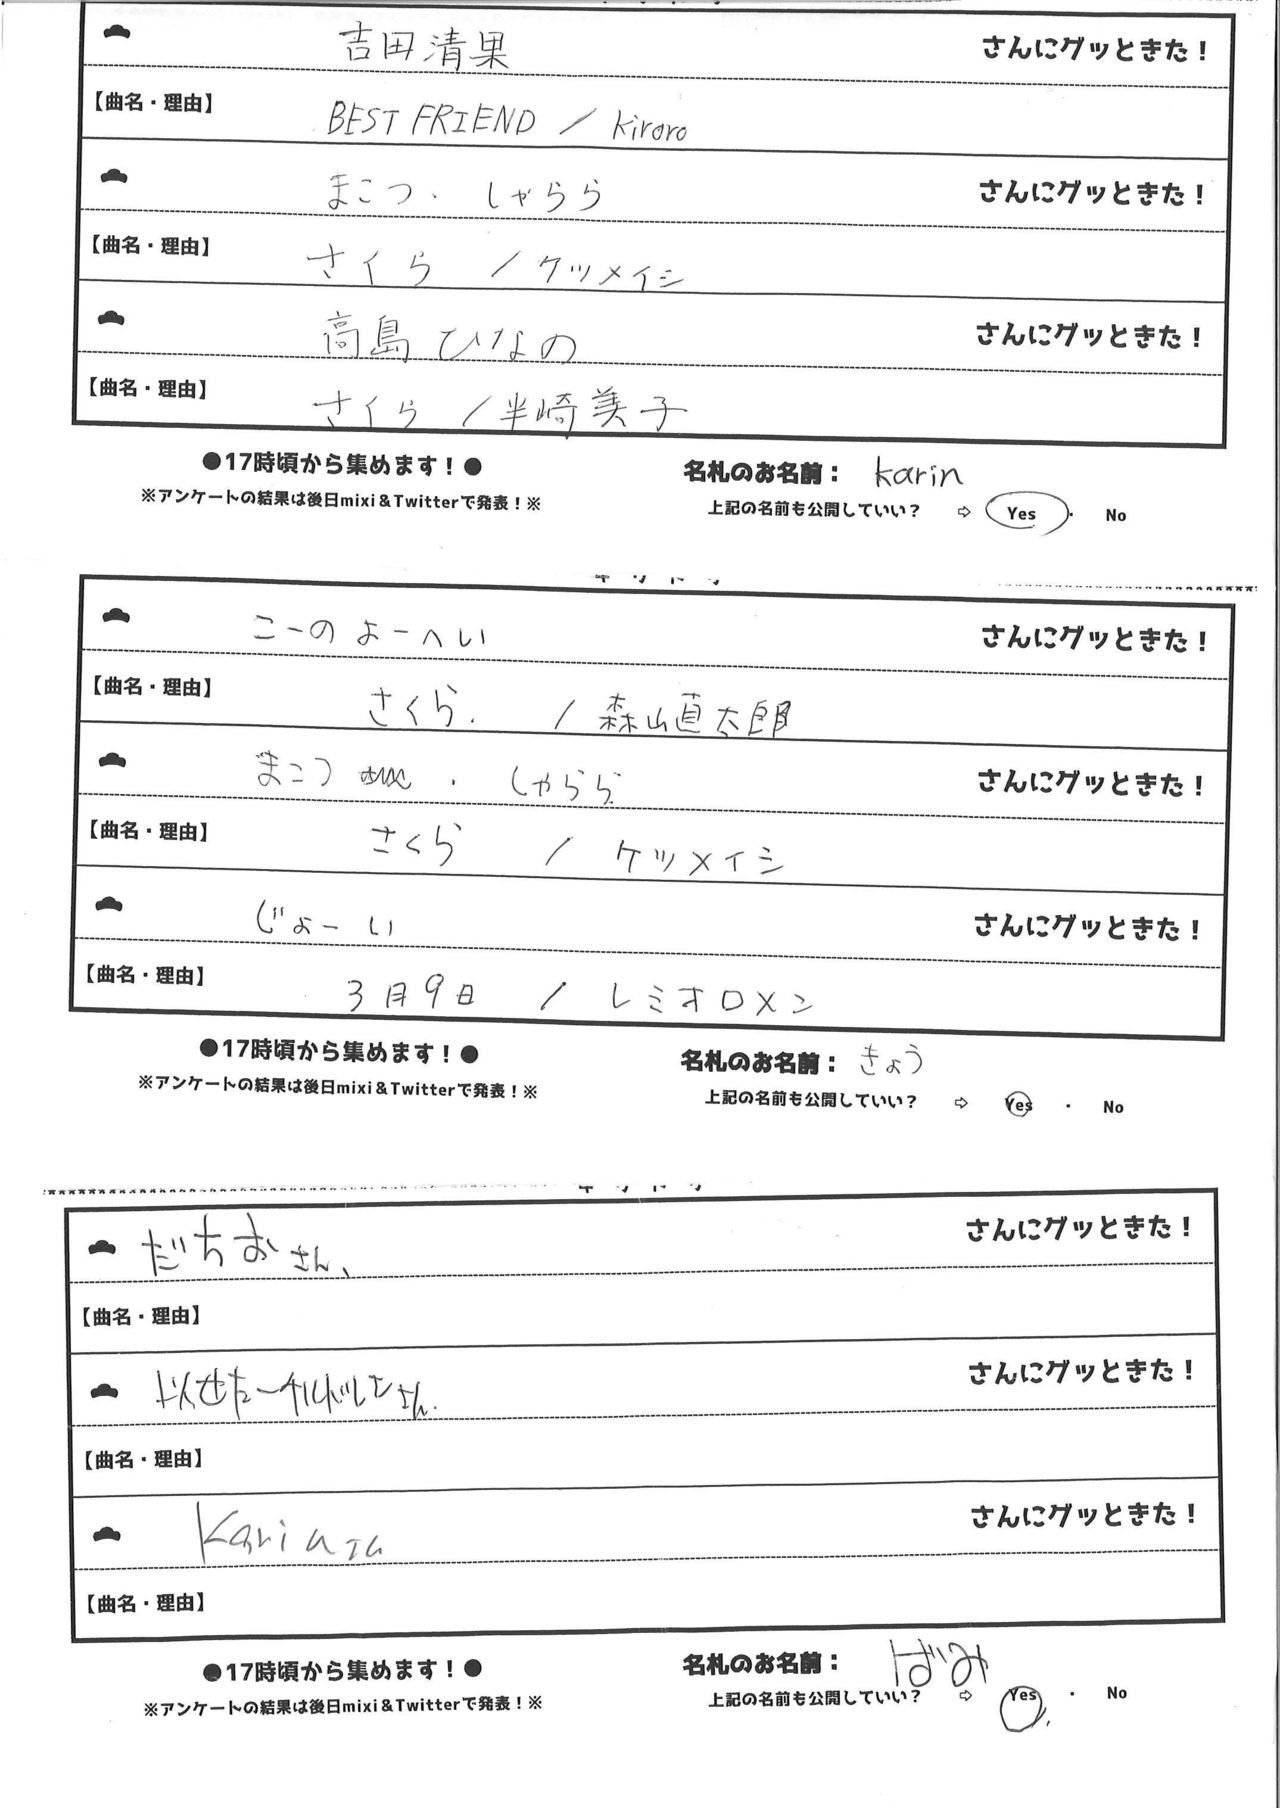 吉田清果 さんにグッときた！
【曲名・理由】 BEST FRIEND / kiroro
まこつ・しゃらら さんにグッときた！
【曲名・理由】 さくら / ケツメイシ
高島ひなの さんにグッときた！
【曲名・理由】 さくら / 半崎美子
●17時頃から集めます！● 名札のお名前： karin
※アンケートの結果は後日mixi＆Twitterで発表！※ 上記の名前も公開していい？ ⇨ Yes ・ No
こーのよーへい さんにグッときた！
【曲名・理由】 さくら. / 森山直太郎
まこつ ・ しゃらら さんにグッときた！
【曲名・理由】 さくら / ケツメイシ
じょーい さんにグッときた！
【曲名・理由】 3月9日 / レミオロメン
●17時頃から集めます！● 名札のお名前： きょう
※アンケートの結果は後日mixi＆Twitterで発表！※ 上記の名前も公開していい？ ⇨ Yes ・ No
だちおさん、 さんにグッときた！
【曲名・理由】
さん. さんにグッときた！
【曲名・理由】
Karin さんにグッときた！
【曲名・理由】
●17時頃から集めます！● 名札のお名前： ばみ
※アンケートの結果は後日mixi＆Twitterで発表！※ 上記の名前も公開していい？ ⇨ Yes ・ No